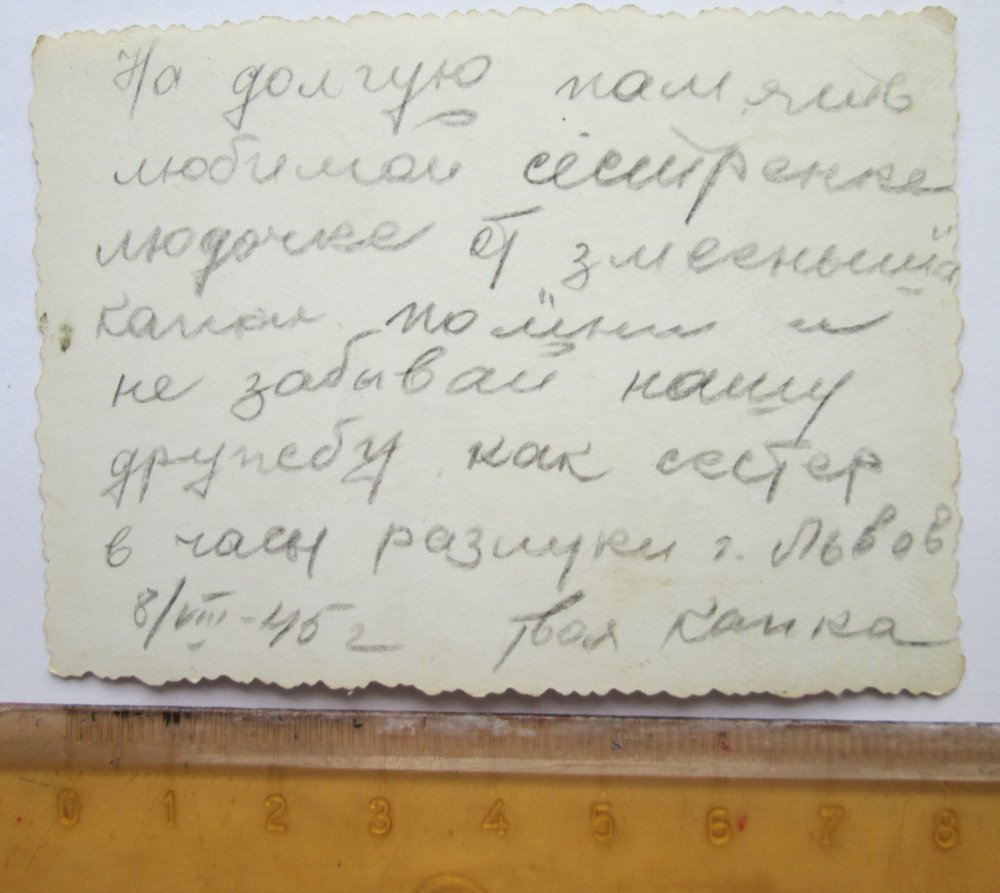 На долгую память
любимой сестренке
людочке от змееныша
капки помни и
не забывай нашу
дружбу как сестер
в часы разлуки г. Львов
8/VIII-45 г твоя Капка
0 1 2 3 4 5 6 7 8